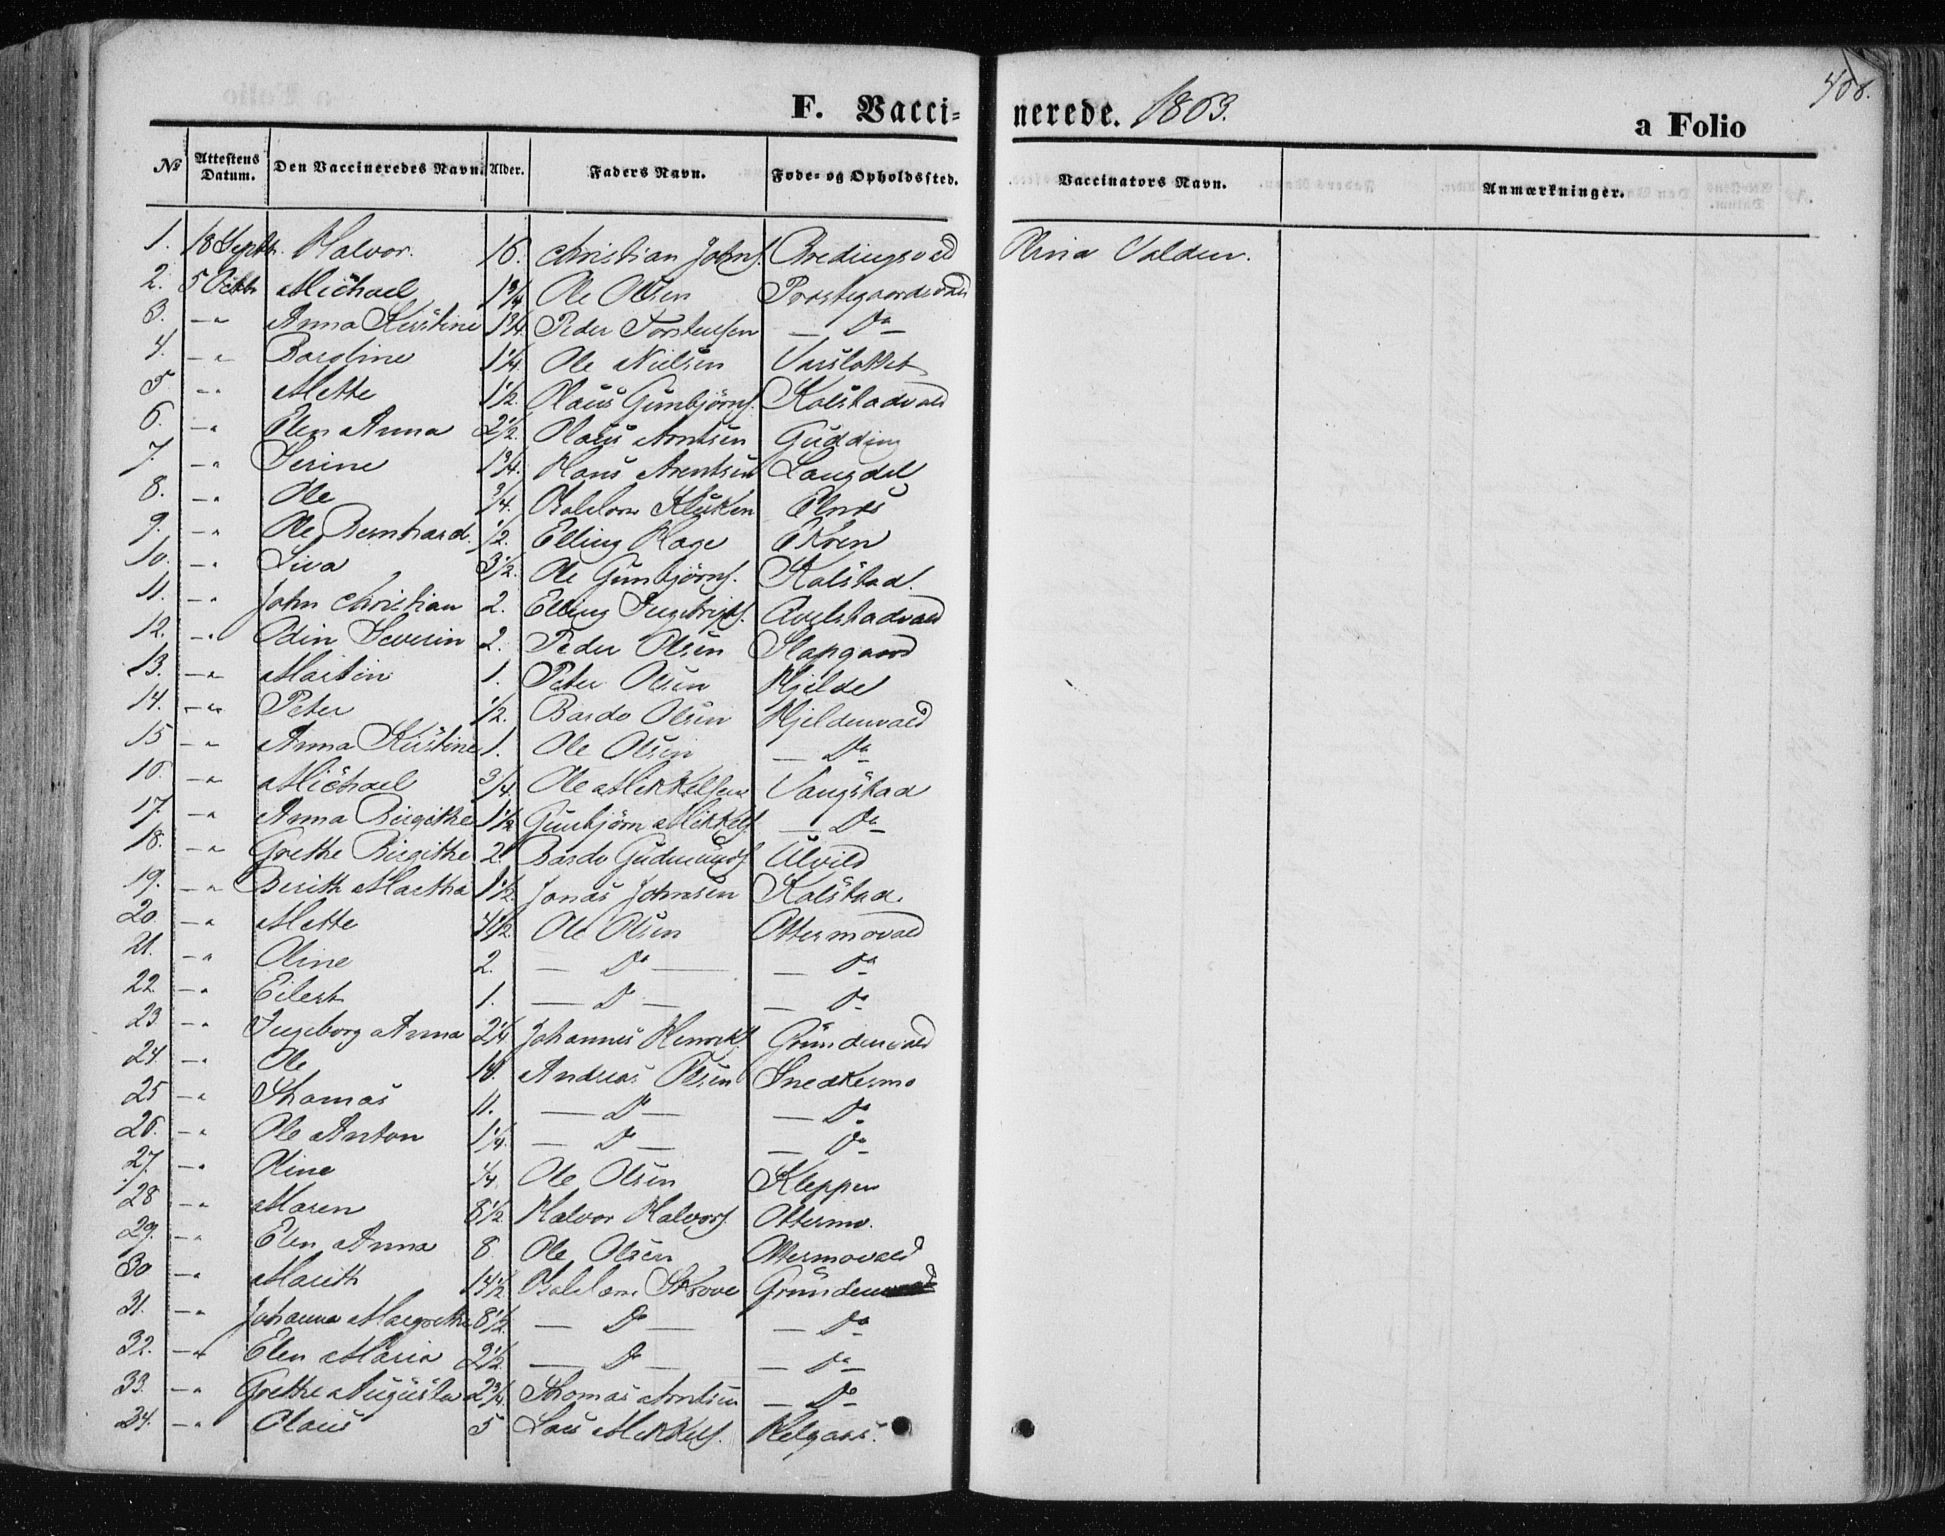 F. Vacci=nerede. 1863.
a Folio
408.
No Attestens Datum. Den Vaccineredes Navn. Alder. Faders Navn. Føde= og Opholdssted. Vaccinators Navn. Anmærkninger.
1. 18 Septbr. Halvor. 16. Christian Johns. Bredingsvald Olina Valden.
2. 5 Octbr Michael 1 3/4 Ole Olsen Præstegaardsvald
3. — " Anna Kirstine 1 3/4. Peder Torstensen — Do —
4. — " Bergline 1 1/4 Ole Nielsen
5 — " Mette 1 1/2. Claus Gunbjørns. Kolstadvald
6. — " Elen Anna 2 1/2. Claus Arntsen Gudding
7. — " Serine 1 3/4. Hans Arentsen Langdal
8. — " Ole 3/4. Klukken Elnæs
9. — " Ole Bernhard. 1/2. Elling Hage Ekren
10. — " Liva 3 1/2. Ole Gunbjørns. Kolstad.
11. — " John Christian 2. Elling Avelstadvald
12. — " Odin Severin 2. Peder Olsen Slapgaard
13. — " Martin 1. Peter Olsen Hjelde
14. — " Peter 1/2. Bardo Olsen Hjeldenvald
15 — " Anna Kirstine 1. Ole Olsen — Do —
16. — " Michael 3/4. Ole Mikkelsen Vangstad
17. — " Anna Birgithe 1 1/2 Gunbjørn Mikkels. — Do —
18. — " Grethe Birgithe 2. Bardo Gudmunds. Ulvild
19. — " Berith Martha 1 1/2. Jonas Johnsen Kolstad.
20. — " Mette 4 1/2 Ole Olsen Ottermovald
21. — " Oline 2. — Do — — Do —
22. — " Eilert 1. — Do — — Do —
23. — " Ingeborg Anna 2 1/4 Johannes Henriks. Gründenvald
24 — " Ole Andreas Olsen Snedkermo
25 — " Thomas 11. — Do — — Do —
26. — " Ole Anton 1 1/4. — Do — — Do —
27. — " Oline Ole Olsen Kleppen
28 — " Maren 8 1/2. Halvor Halvors. Ottermo.
29. — " Elen Anna 8. Ole Olsen Ottermovald
30 — " Marith 14 1/2 Skrove Gründen
31. — " Johanna Margrethe 8 1/2. — Do — — Do —
32. — " Elen Maria 2 1/2. — Do — — Do —
33. — " Grethe Augusta 2 3/4. Thomas Arntsen — Do —
34. — " Claus 5 Lars Mikkels. Helgaas.